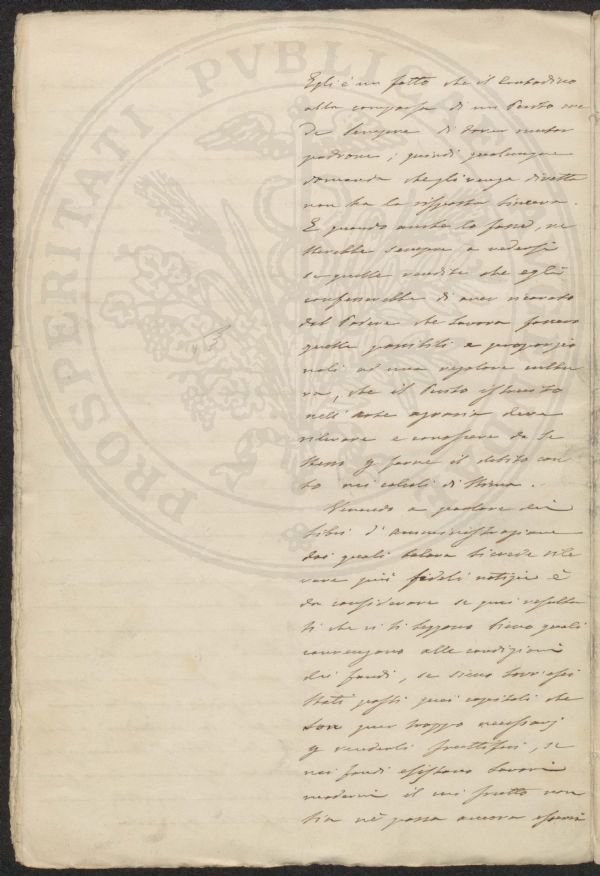 PROSPERITATI PVBLICAE
Egli è un fatto che il Contadino
alla comparsa di un Perito
di sempre di dover mutar
padrone; quindi qualunque
domanda che gli venga diretta
non ha la risposta sincera.
E quando anche lo fosse,
sterebbe sempre a vedersi
se quelle rendite che egli
confesserebbe di aver ricavato
dal Podere che lavora fossero
quelle possibili e proporzio
nali ad una regolare cultu
ra, che il Perito istruito
nell'Arte agraria deve
rilevare e conoscere da se
stesso p farne il debito con
to nei calcoli di Stima.
Venendo a parlare dei
libri d'Amministrazione
dai quali talora si crede rile
vare più fideli notizie è
da considerare se quei resulta
ti che vi si leggono sieno quali
convengono alle condizioni
dei fondi, se sieno
stati posti quei capitali che
son pur troppo necessarj
p renderli fruttiferi, se
nei fondi esistano lavori
moderni il cui frutto non
sia nè possa ancora essere